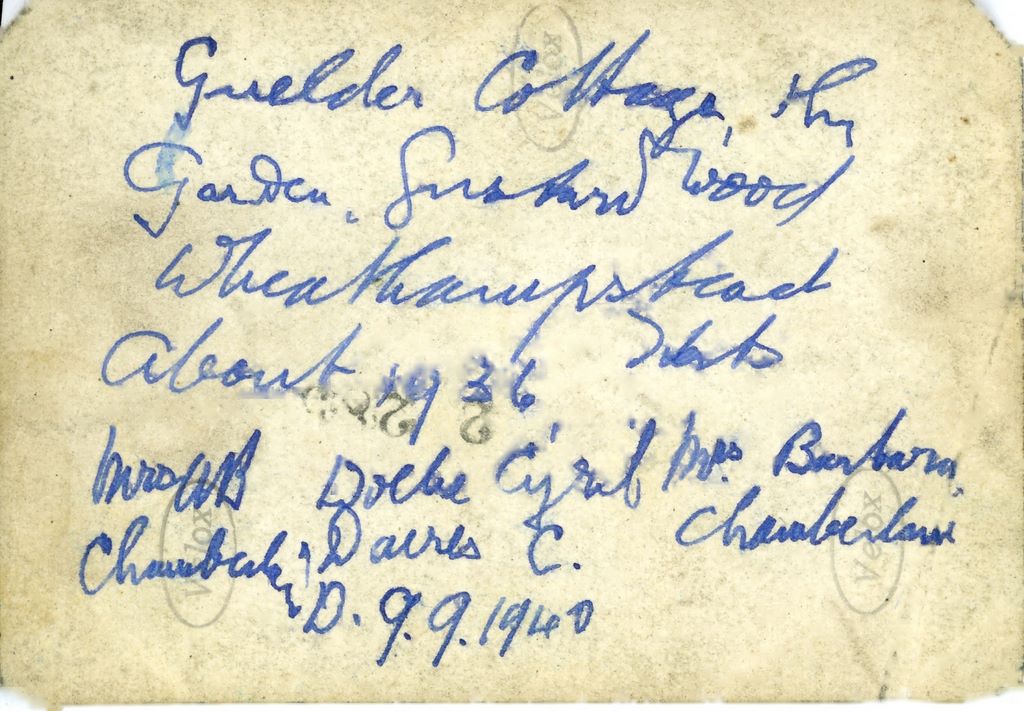 Guelder Cottage, the
Garden, Gustard Wood
Wheathampstead
About 1936, Herts
Mrs AB Dolbe Cyril Mrs. Barbara
Chamberlain Dacres C. Chamberlain
D. 9.9.1940
Velox
Velox
Velox